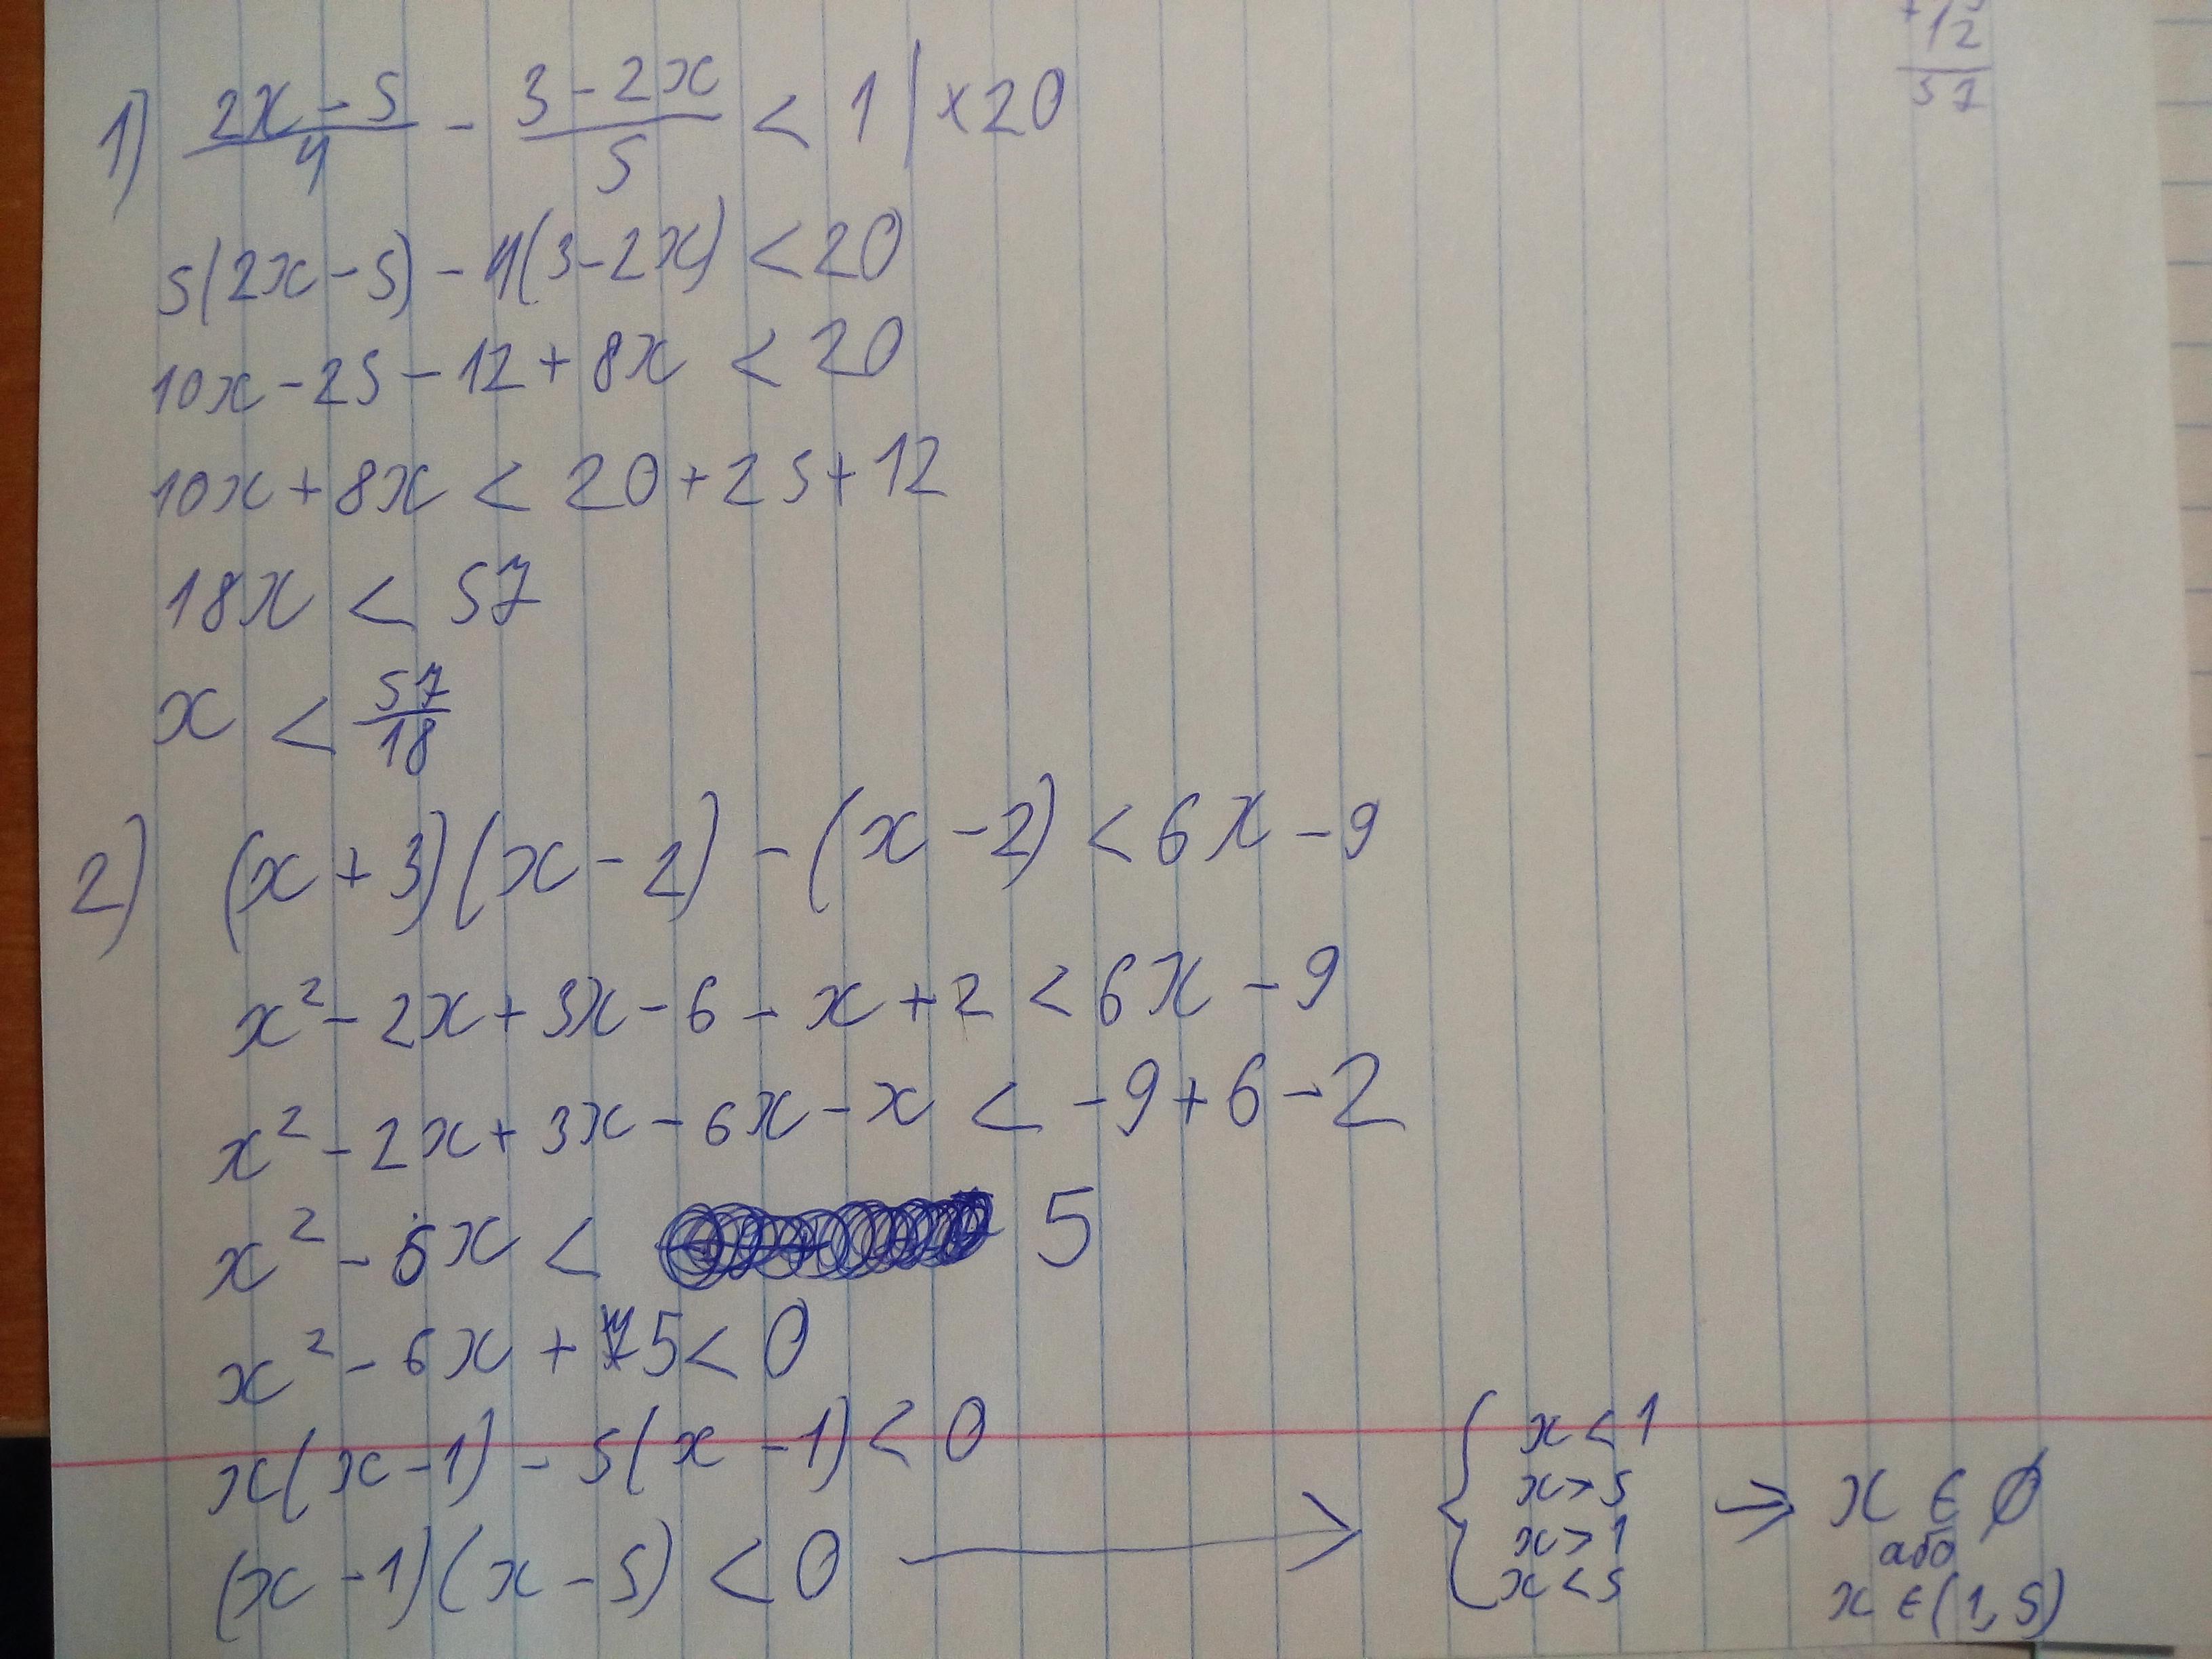 +12
57
1) \frac{2x-5}{4} - \frac{3-2x}{5} < 1 | ×20
5(2x-5) - 4(3-2x) < 20
10x - 25 - 12 + 8x < 20
10x + 8x < 20 + 25 + 12
18x < 57
x < \frac{57}{18}
2) (x+3)(x-2) - (x-2) < 6x - 9
x² - 2x + 3x - 6 - x + 2 < 6x - 9
x² - 2x + 3x - 6x - x < -9 + 6 - 2
x² - 6x < 5
x² - 6x + 5 < 0
x(x-1) - 5(x-1) < 0
(x-1)(x-5) < 0 →
{ x < 1
x > 5
x > 1
x < 5
→ x ∈ ∅
або
x ∈ (1, 5)